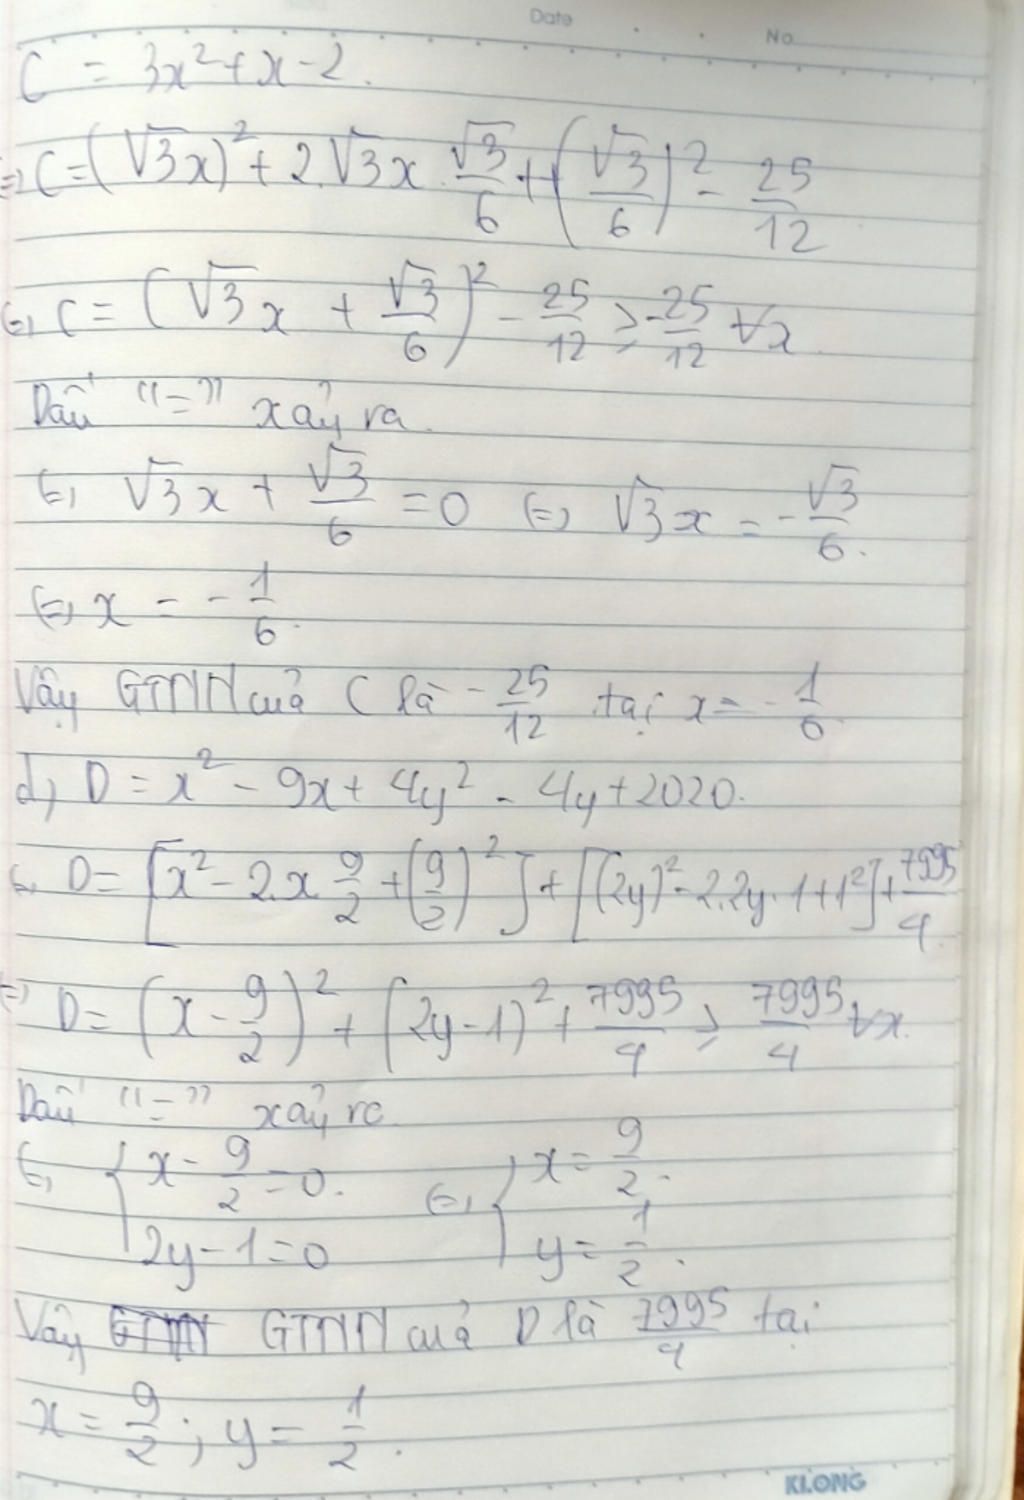 Date
No
C = 3x² + x - 2.
=> C = (√3x)² + 2.√3x.√3/6 + (√3/6)² - 25/12
<=> C = (√3x + √3/6)² - 25/12 ≥ -25/12 ∀x
Dấu "=" xảy ra.
<=> √3x + √3/6 = 0 <=> √3x = -√3/6.
<=> x = -1/6.
Vậy GTNN của C là -25/12 tại x = -1/6
d) D = x² - 9x + 4y² - 4y + 2020.
<=> D = [x² - 2.x 9/2 + (9/2)²] + [(2y)² - 2.2y.1 + 1²] + 7995/4
<=> D = (x - 9/2)² + (2y - 1)² + 7995/4 ≥ 7995/4 ∀x.
Dấu "=" xảy ra
<=> { x - 9/2 = 0. <=> { x = 9/2.
2y - 1 = 0 y = 1/2.
Vậy GTNN của D là 7995/4 tại
x = 9/2; y = 1/2.
KLONG